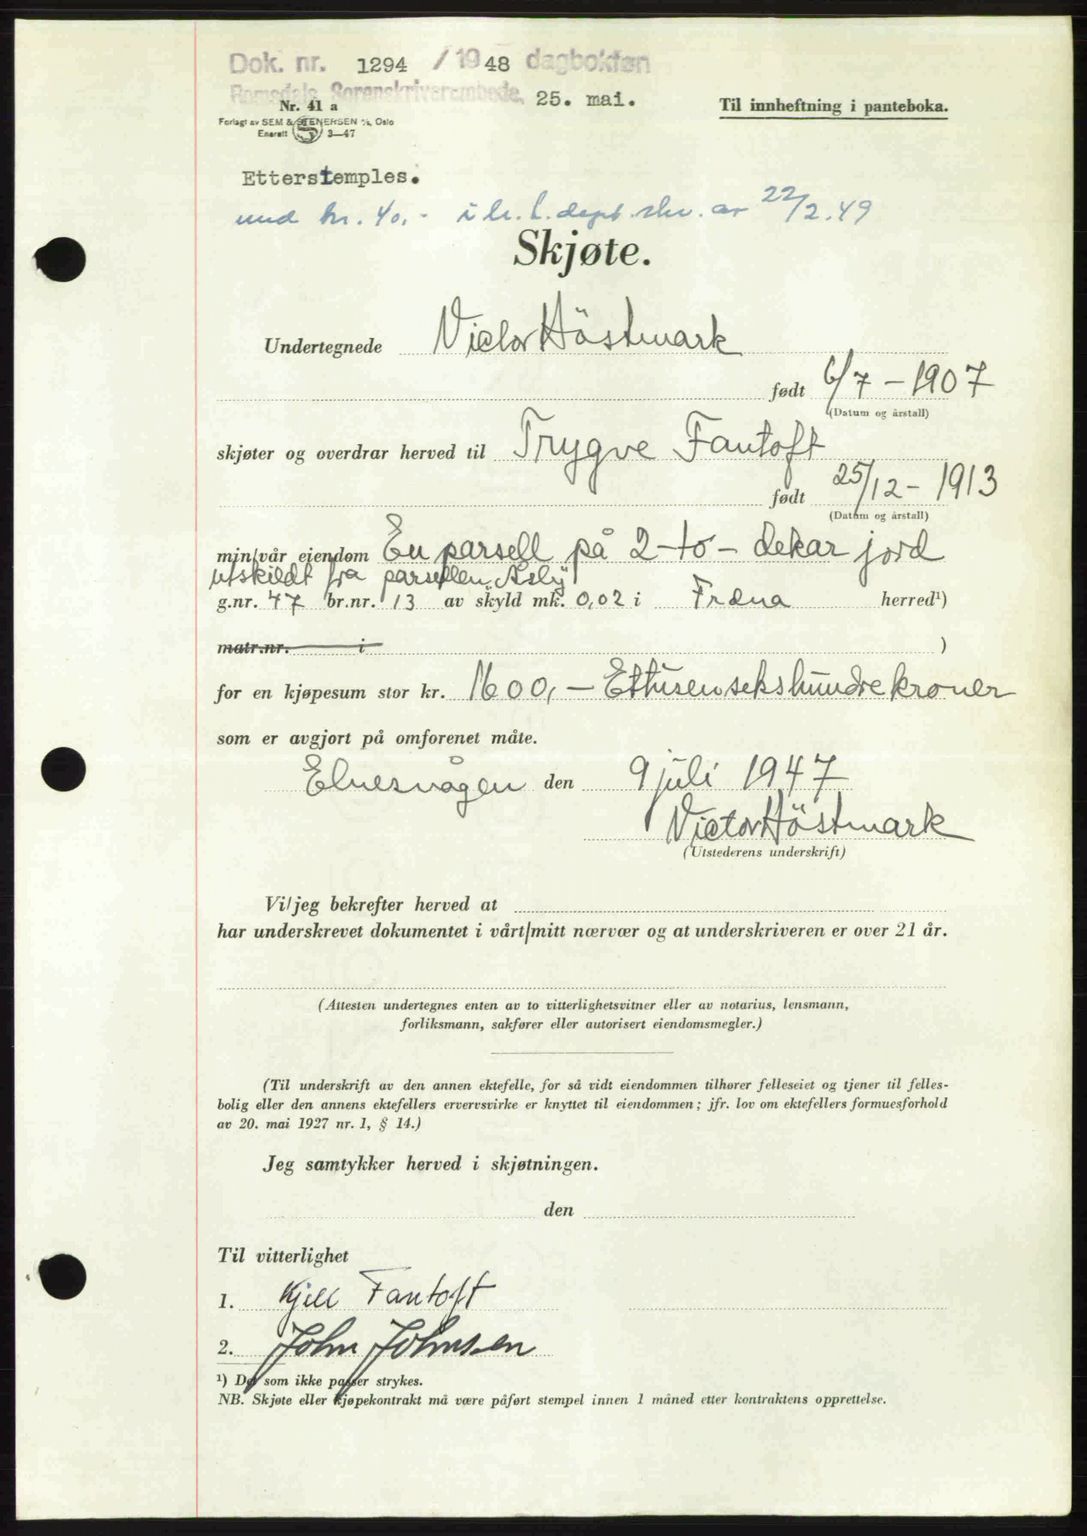 Dok. nr. 1294 / 1948 dagbokført
Romsdals Sorenskriverembede, 25. mai.
Nr. 41 a
Til innheftning i panteboka.
Forlagt av SEM & STENERSEN A/S, Oslo
Enerett S 3—47
Etterstemples.
med kr. 40,- i h. t. dept. skr. av 22/2.49
Skjøte.
Undertegnede Victor Höstmark
født 6/7 - 1907
(Datum og årstall)
skjøter og overdrar herved til Trygve Fantoft
født 25/12 - 1913
(Datum og årstall)
min/vår eiendom En parsell på 2-to- dekar jord
utskildt fra parsellen
g.nr. 47 br.nr. 13 av skyld mk. 0,02 i Fræna herred¹)
matr.nr. i )
for en kjøpesum stor kr. 1600,- Ettusensekshundrekroner
som er avgjort på omforenet måte.
Elnesvågen den 9 juli 1947
Victor Höstmark
(Utstederens underskrift)
Vi/jeg bekrefter herved at
har underskrevet dokumentet i vårt/mitt nærvær og at underskriveren er over 21 år.
(Attesten undertegnes enten av to vitterlighetsvitner eller av notarius, lensmann,
forliksmann, sakfører eller autorisert eiendomsmegler.)
(Til underskrift av den annen ektefelle, for så vidt eiendommen tilhører felleseiet og tjener til felles-
bolig eller den annens ektefellers ervervsvirke er knyttet til eiendommen; jfr. lov om ektefellers formuesforhold
av 20. mai 1927 nr. 1, § 14.)
Jeg samtykker herved i skjøtningen.
den
Til vitterlighet
1. Kjell Fantoft
2. John Johnsen
¹) Det som ikke passer strykes.
NB. Skjøte eller kjøpekontrakt må være påført stempel innen 1 måned etter kontraktens opprettelse.